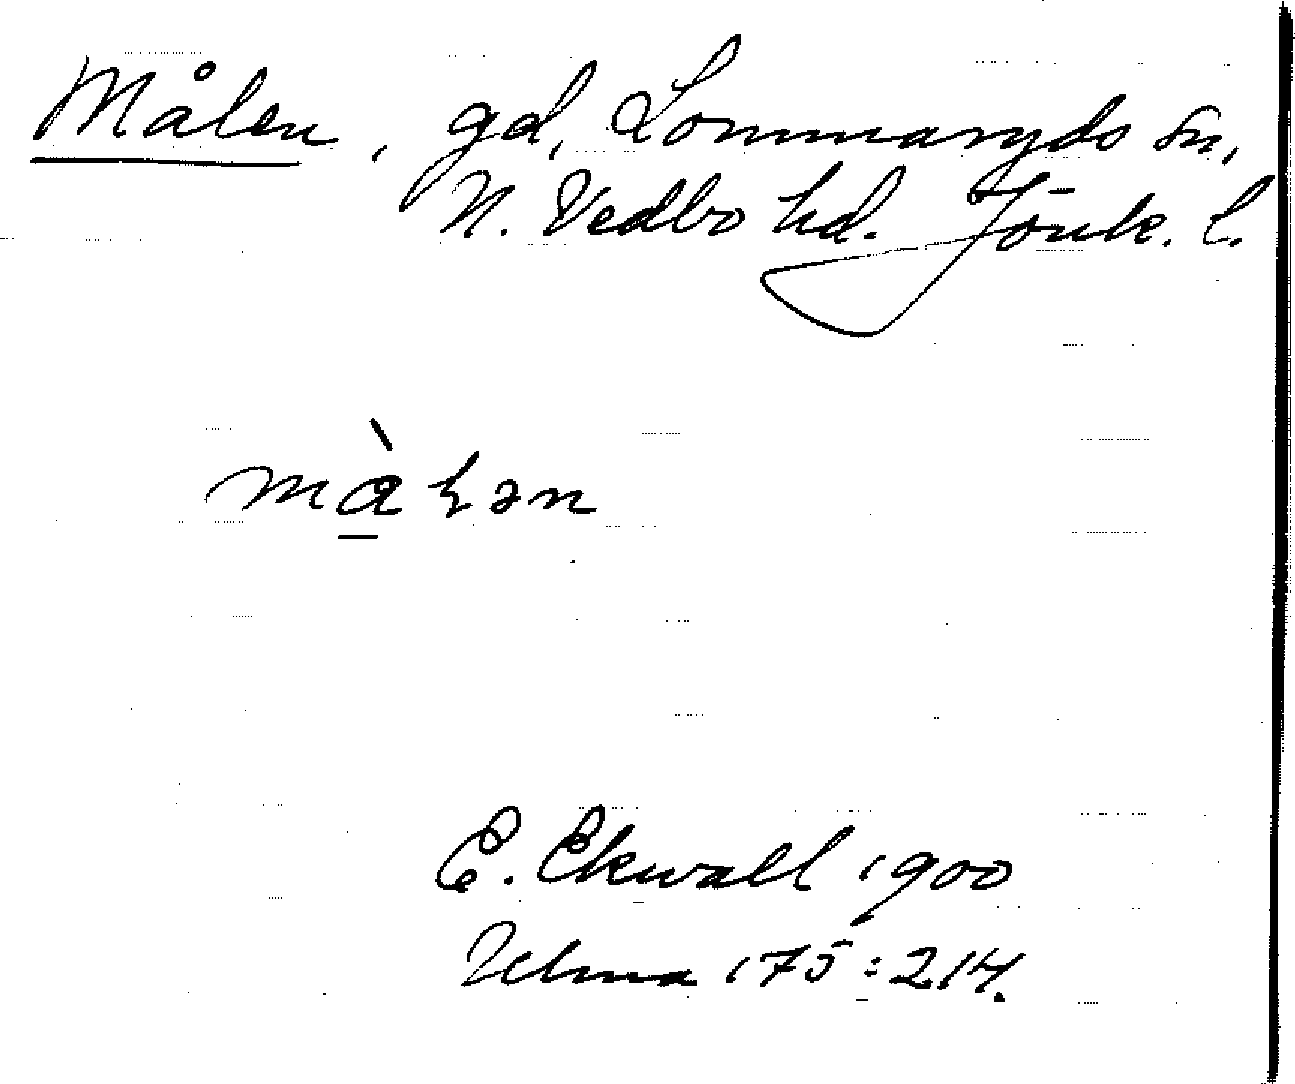 Målen, gd, Lommaryds sn,
N. Vedbo hd. Jönk. l.
màlən
E. Ekwall 1900
Ulma 175:214.